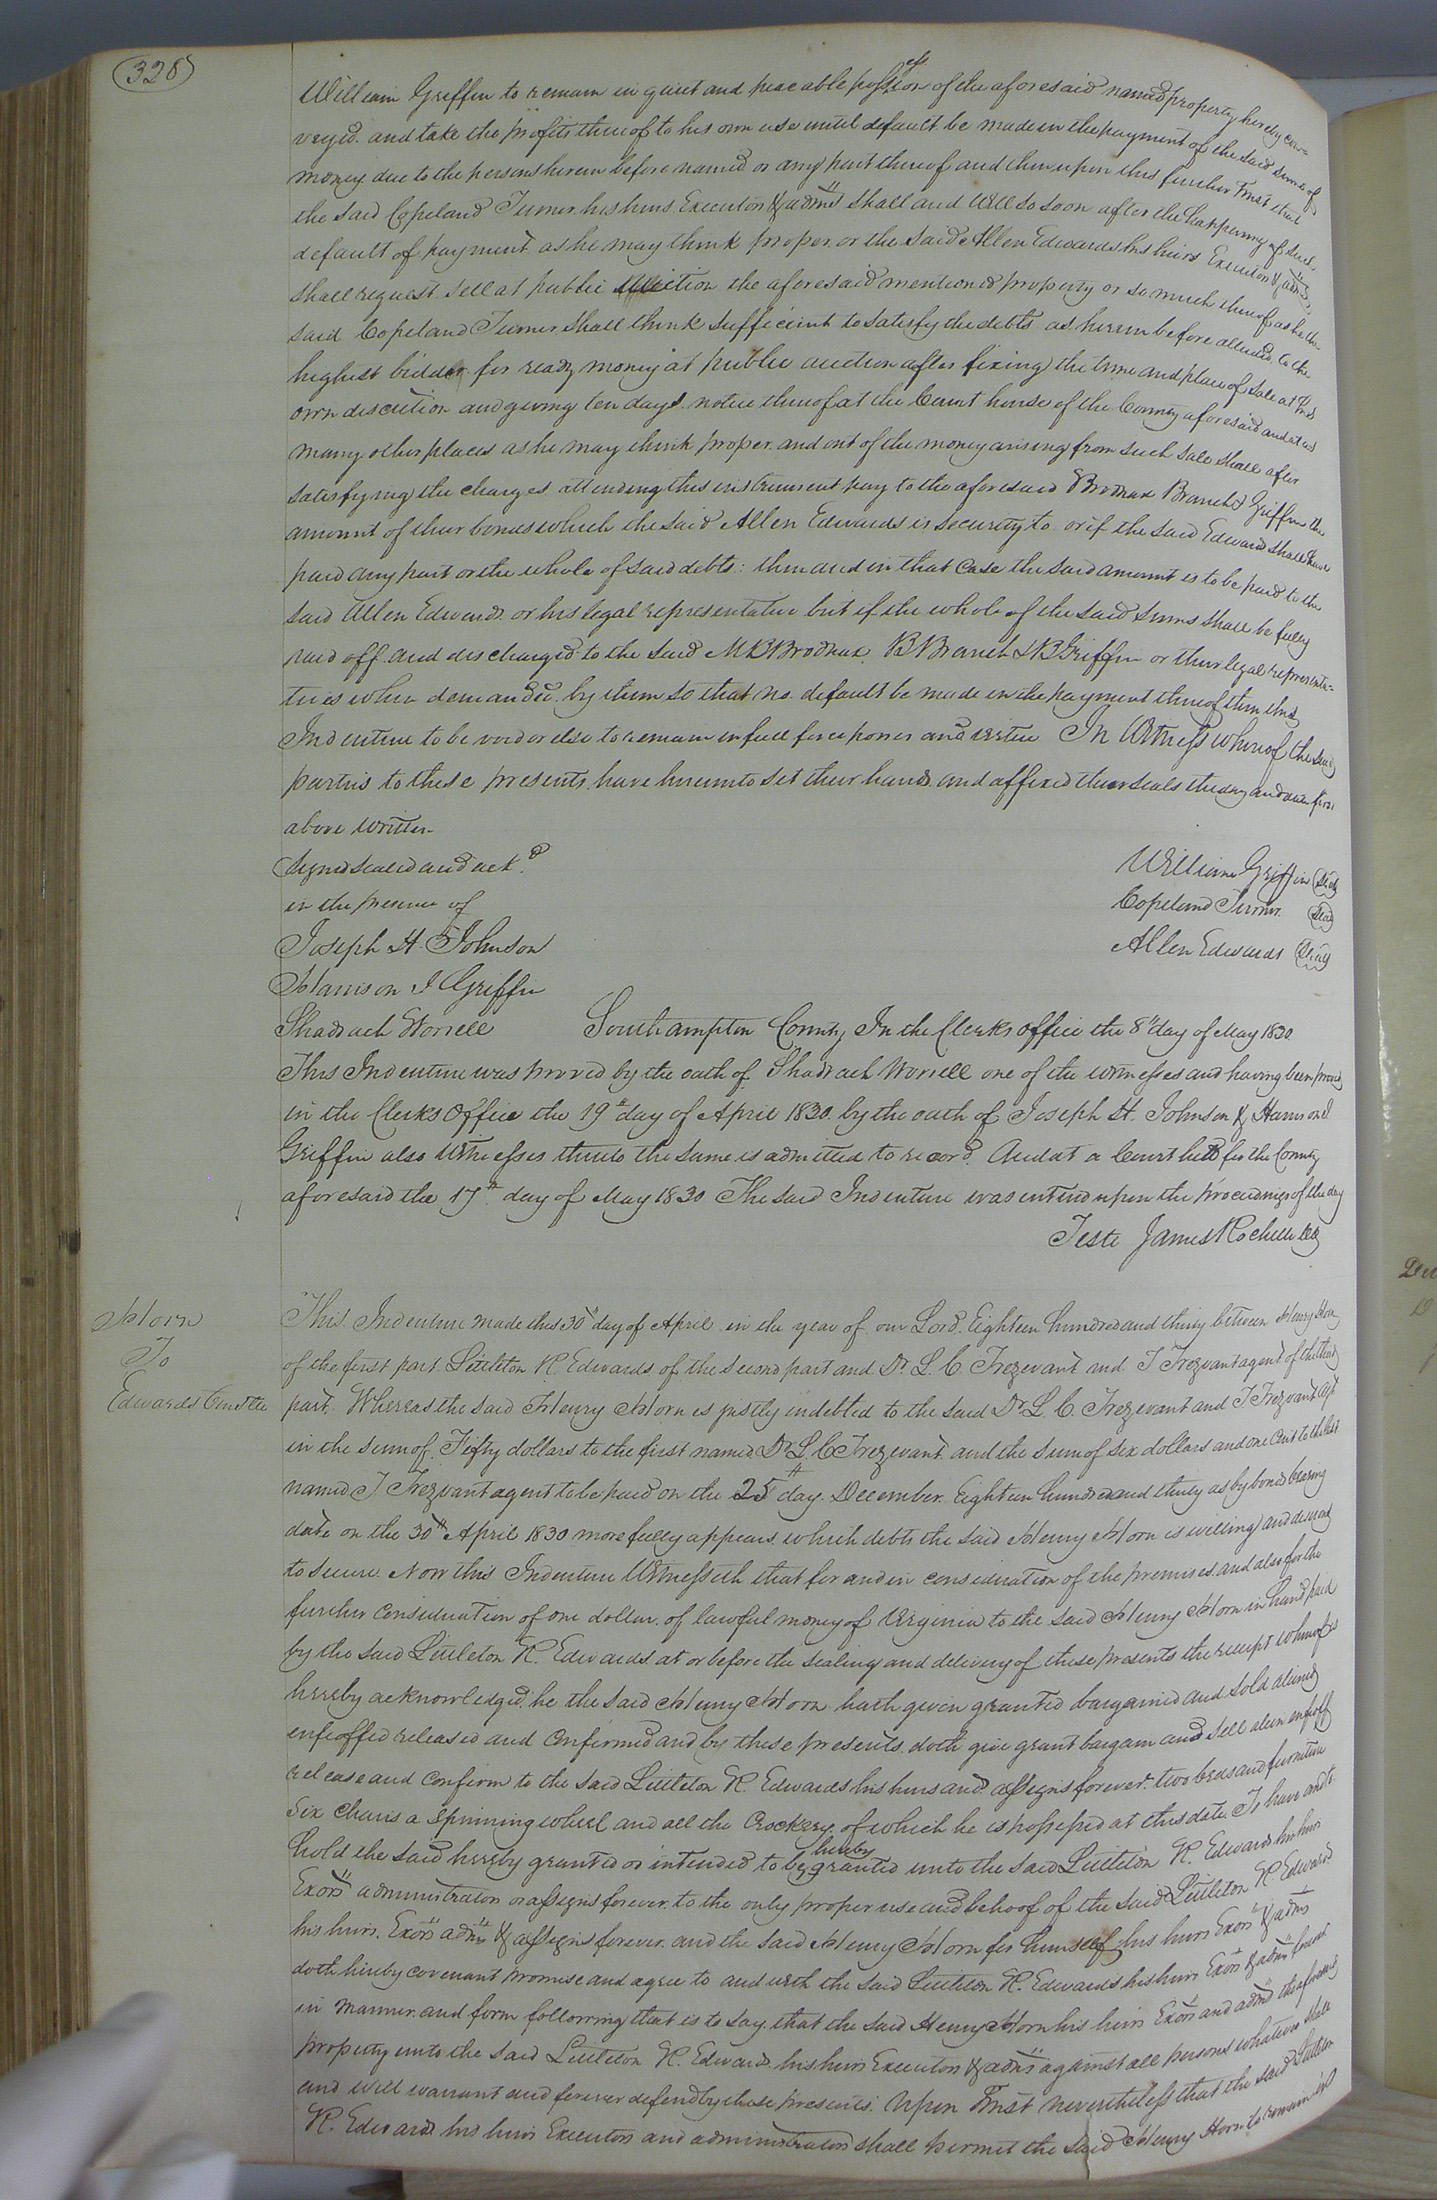 328
William Griffin to remain in quiet and peaceable possession of the aforesaid named property hereby con=
veyed. and take the profits thereof to his own use until default be made in the payment of the said sums of
money due to the persons herein before named or any part thereof and then upon this further Trust that
the said Copeland Turner his heirs Executors & admrs shall and will so soon after the happening of such
default of payment as he may think proper or the said Allen Edwards his heirs Executors & admrs
shall request. sell at public auction the aforesaid mentioned property or so much thereof as he the
said Copeland Turner shall think sufficient to satisfy the debts as herein before alluded to the
highest bidder for ready money at public auction after fixing the time and place of sale at his
own discretion and giving ten days notice thereof at the Court house of the County aforesaid and at as
many other places as he may think proper. and out of the money arising from such sale shall after
satisfying the charges attending this instrument pay to the aforesaid Brodnax Branch & Griffin the
amount of their bonds which the said Allen Edwards is security to or if the said Edwards shall have
paid any part or the whole of said debts: then and in that case the said amount is to be paid to the
said Allen Edwards. or his legal representative but if the whole of the said sums shall be fully
paid off and discharged to the said M B Brodnax B Branch & B Griffin or their legal representa=
tives when demanded by them so that no default be made in the payment thereof then this
Indenture to be void or else to remain in full force power and virtue In Witness whereof the said
parties to these presents have hereunto set their hands and affixed their seals the day and year first
above written
Signed sealed and ackd
in the presence of
Joseph H. Johnson
Harrison J Griffin
Shadrach Worrell
William Griffin Seal
Copeland Turner Seal
Allen Edwards Seal
Southampton County In the Clerks office the 8th day of May 1830
This Indenture was proved by the oath of Shadrach Worrell one of the witnesses and having been proved
in the Clerks Office the 19th day of April 1830 by the oath of Joseph H. Johnson & Harrison J
Griffin also witnesses thereto the same is admitted to record. And at a Court held for the County
aforesaid the 17th day of May 1830 The said Indenture was entered upon the proceedings of the day
Teste James Rochelle
Horn
To
Edwards Trustee
This Indenture made this 30th day of April in the year of our Lord Eighteen hundred and thirty between Henry Horn
of the first part Littleton R. Edwards of the second part and Dr L. C. Trezevant and J Trezvant agent of the third
part. Whereas the said Henry Horn is justly indebted to the said Dr L. C. Trezevant and J Trezvant agt
in the sum of Fifty dollars to the first named Dr L. C Trezevant and the sum of six dollars and one cent to the last
named J Trezvant agent to be paid on the 25th day December Eighteen hundred and thirty as by bonds bearing
date on the 30th April 1830 more fully appears which debts the said Henry Horn is willing and desirous
to secure. Now this Indenture Witnesseth that for and in consideration of the premises and also for the
further consideration of one dollar. of lawful money of Virginia to the said Henry Horn in hand paid
by the said Littleton R. Edwards at or before the sealing and delivery of these presents the receipt whereof is
hereby acknowledged. he the said Henry Horn hath given granted bargained and sold aliened
enfeoffed released and confirmed and by these presents doth give grant bargain and sell alien enfeoff
release and confirm to the said Littleton R. Edwards his heirs and assigns forever two beds and furniture
Six chairs a spinning wheel and all the Crockery of which he is possessed at this date. To have and to
hold the said hereby granted or intended to be hereby granted unto the said Littleton R. Edwards his heirs
Exors administrators or assigns forever to the only proper use and behoof of the said Littleton R Edwards
his heirs. Exors admrs & assigns forever. and the said Henry Horn for himself his heirs Exors & admrs
doth hereby covenant promise and agree to and with the said Littleton R. Edwards his heirs Exors & admrs
in manner and form following that is to say. that the said Henry Horn his heirs Exors and admrs the aforesaid
property unto the said Littleton R. Edwards his heirs Executors & admrs against all persons whatever shall
and will warrant and forever defend by these presents. Upon Trust nevertheless that the said Littleton
R. Edwards his heirs Executors and administrators shall permit the said Henry Horn to remain in